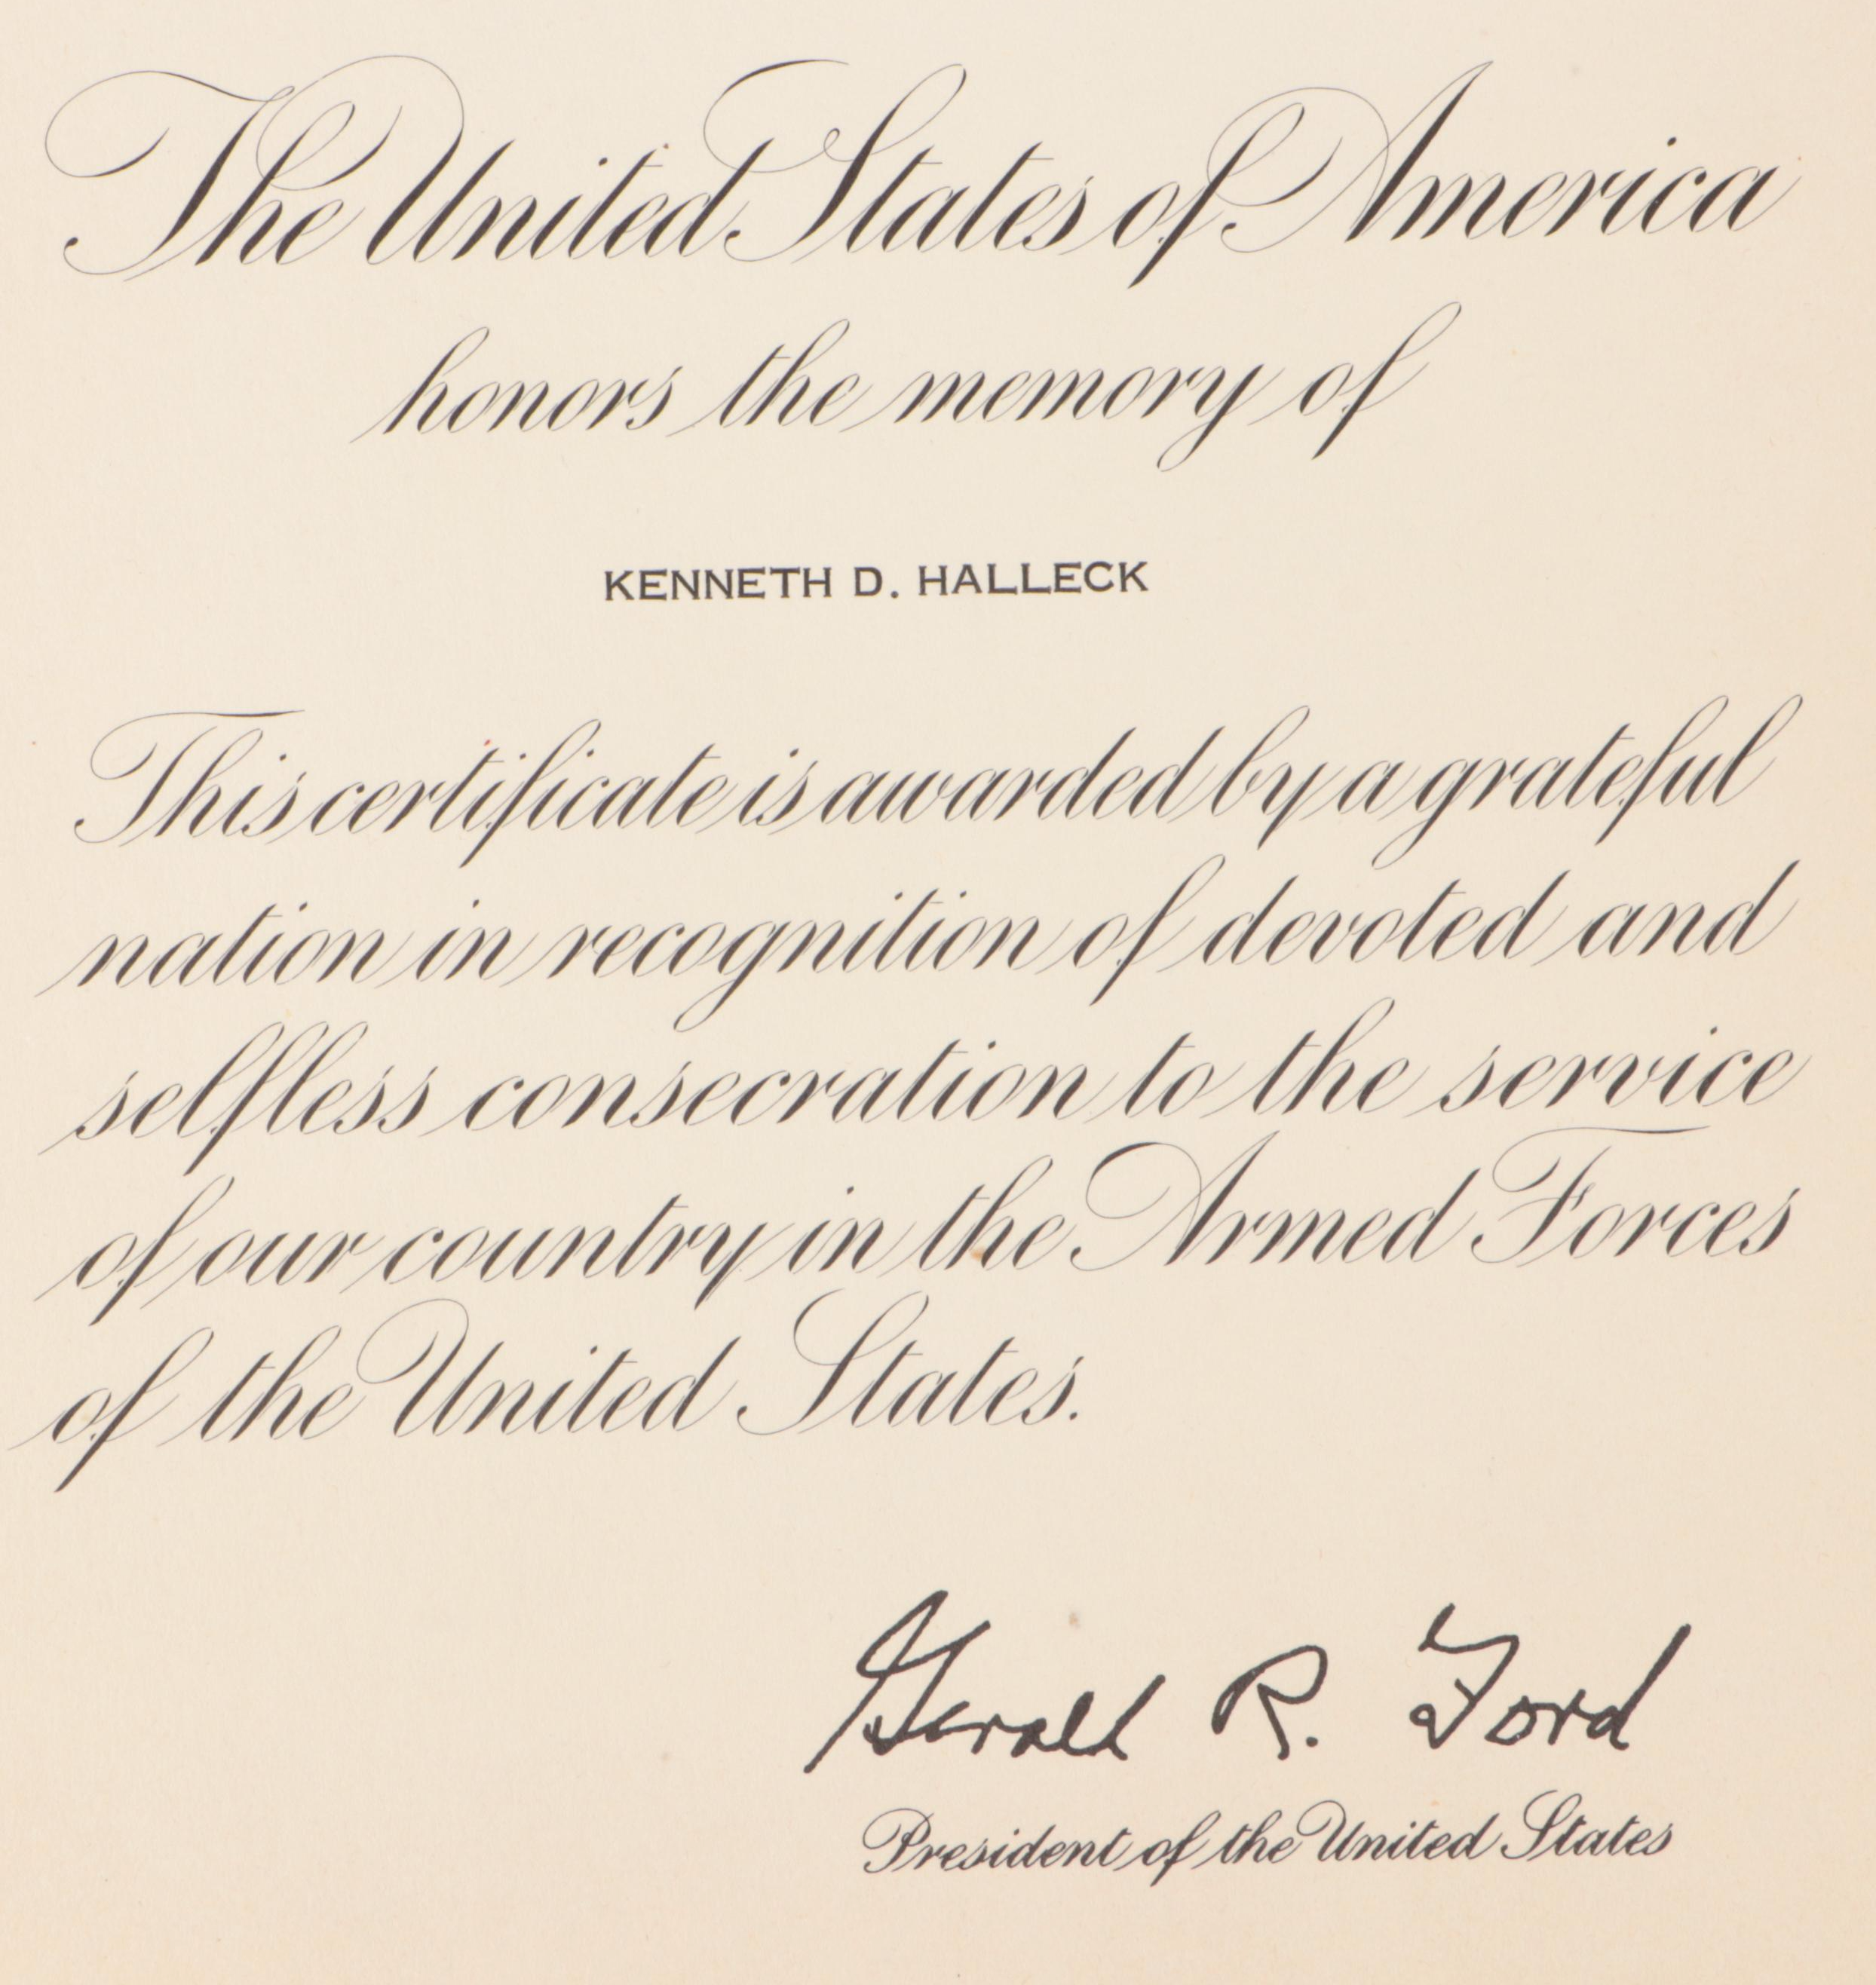 The United States of America
honors the memory of
KENNETH D. HALLECK
This certificate is awarded by a grateful
nation in recognition of devoted and
selfless consecration to the service
of our country in the Armed Forces
of the United States.
Gerald R. Ford
President of the United States